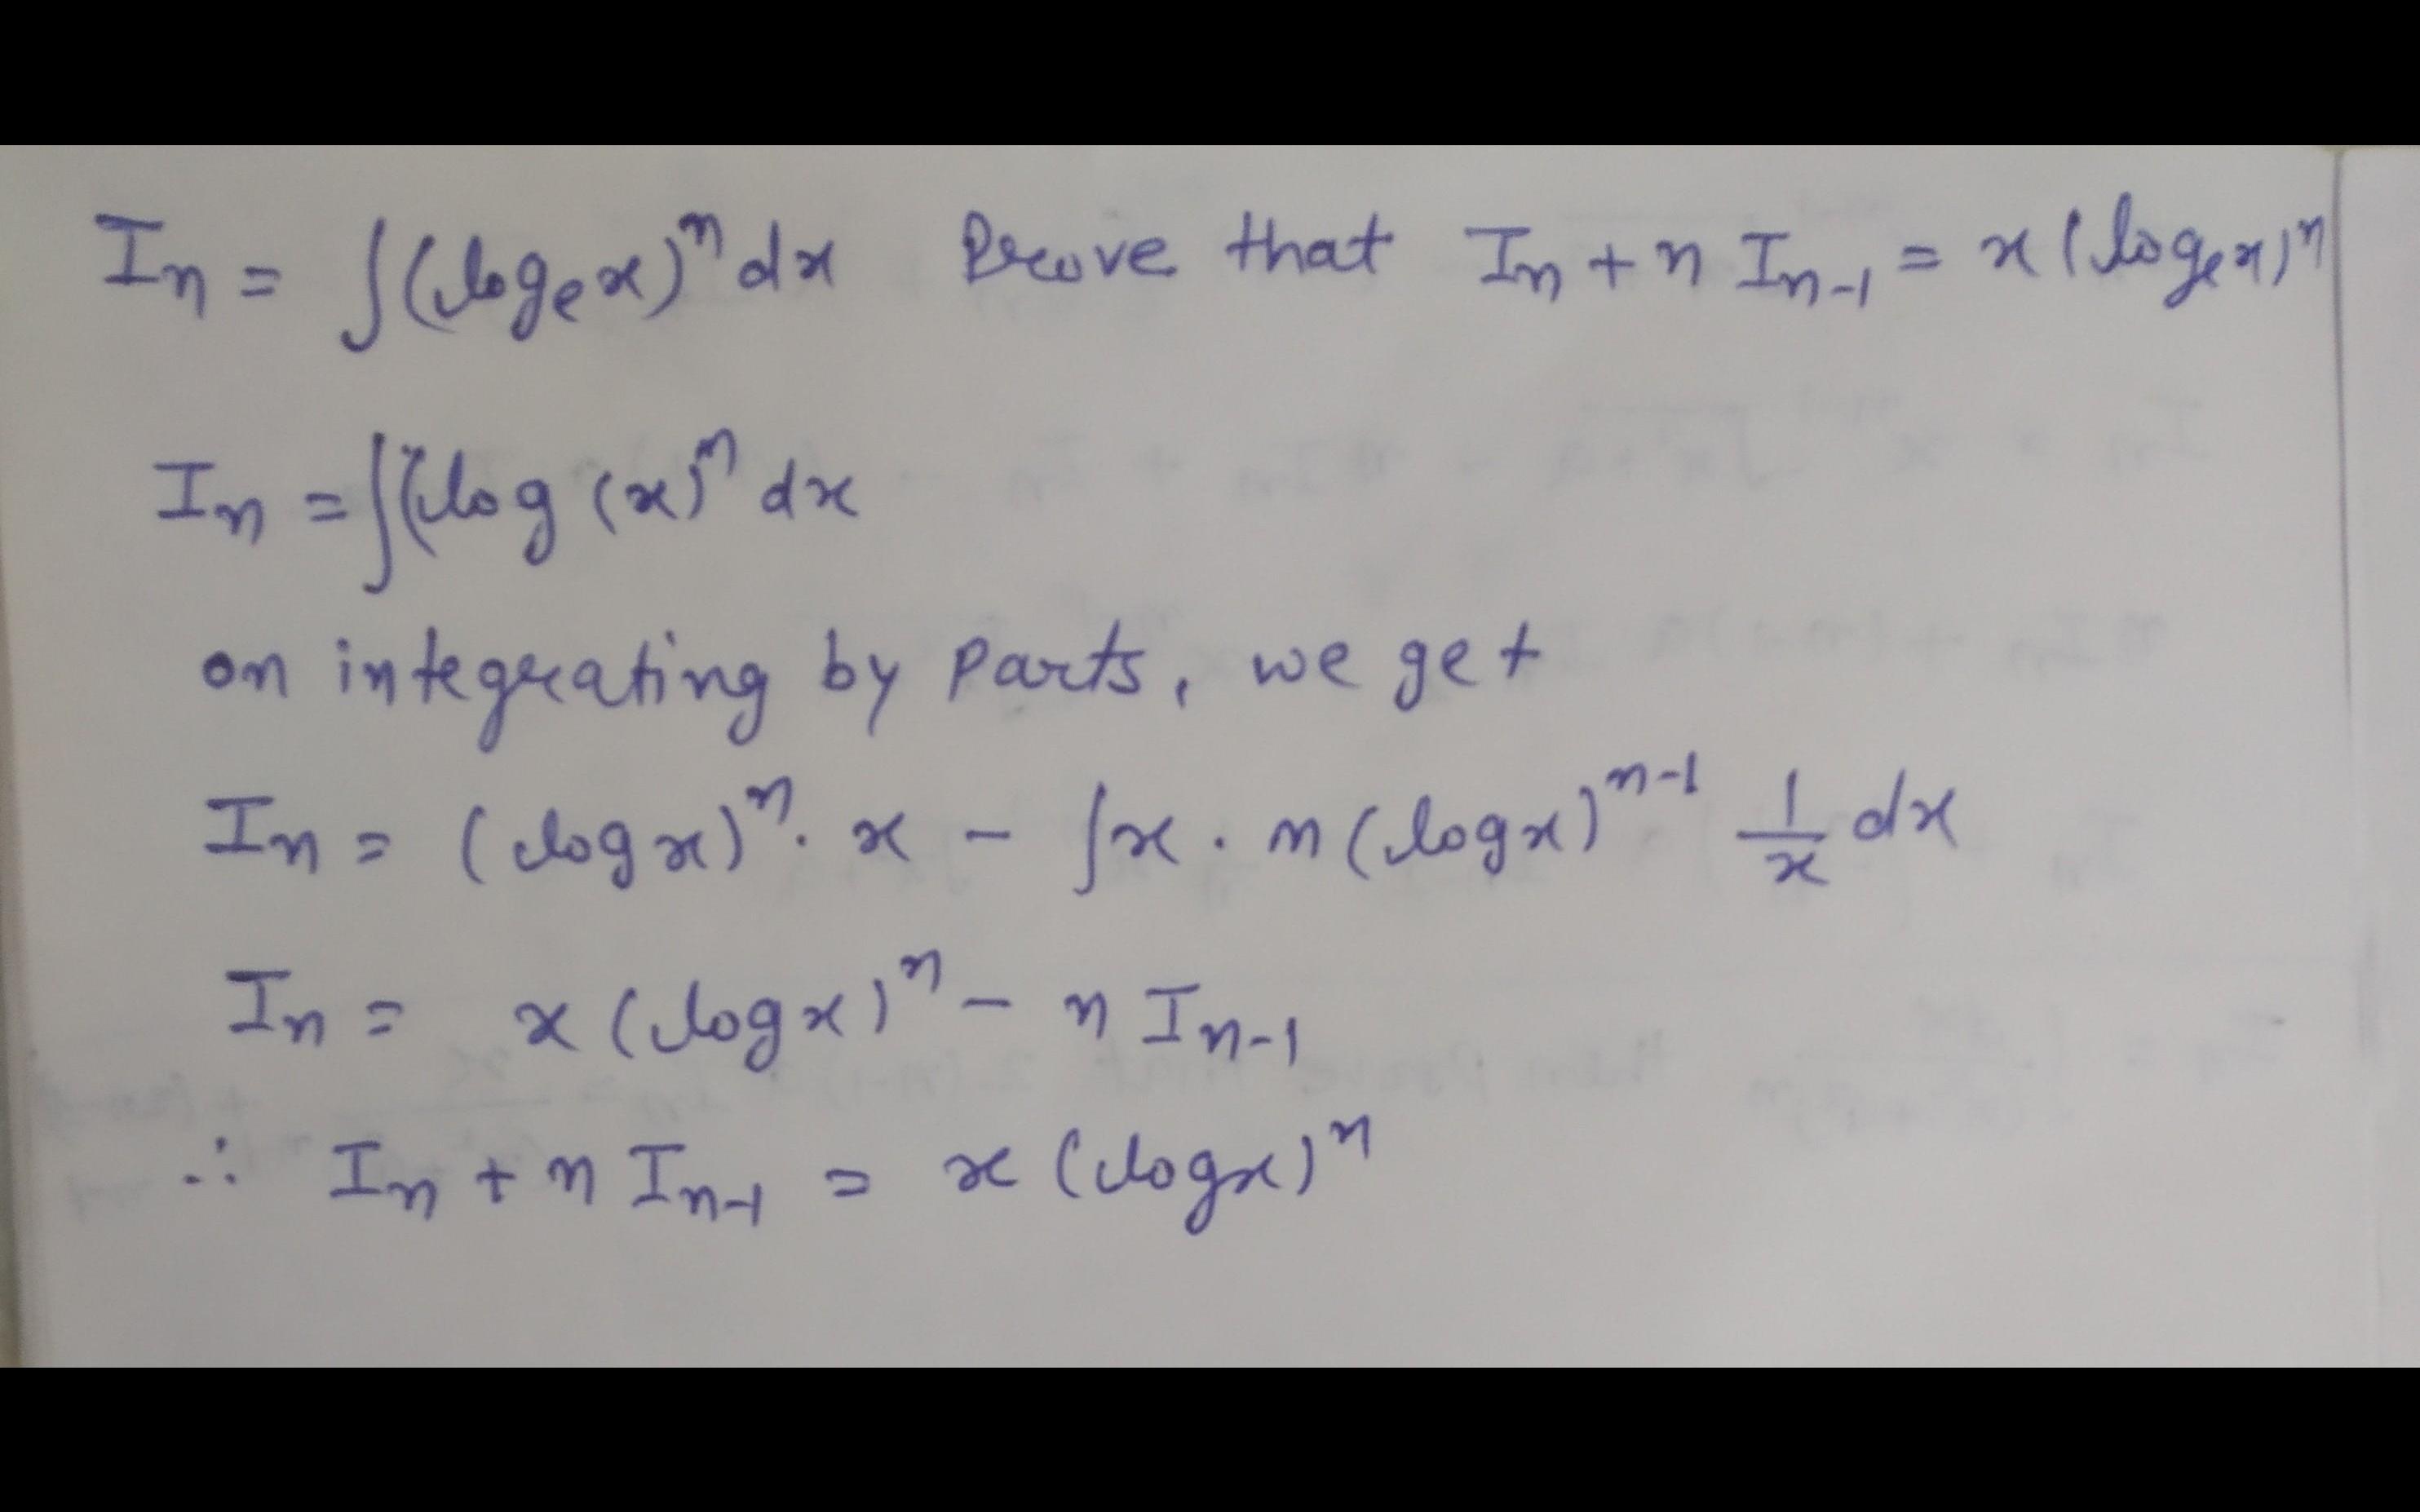 Iₙ = ∫(logₑx)ⁿ dx Prove that Iₙ + n Iₙ₋₁ = x (logₑx)ⁿ
Iₙ = ∫(log (x)ⁿ dx
on integrating by parts, we get
Iₙ = (log x)ⁿ · x - ∫x · n (log x)ⁿ⁻¹ 1/x dx
Iₙ = x (log x)ⁿ - n Iₙ₋₁
∴ Iₙ + n Iₙ₋₁ = x (log x)ⁿ